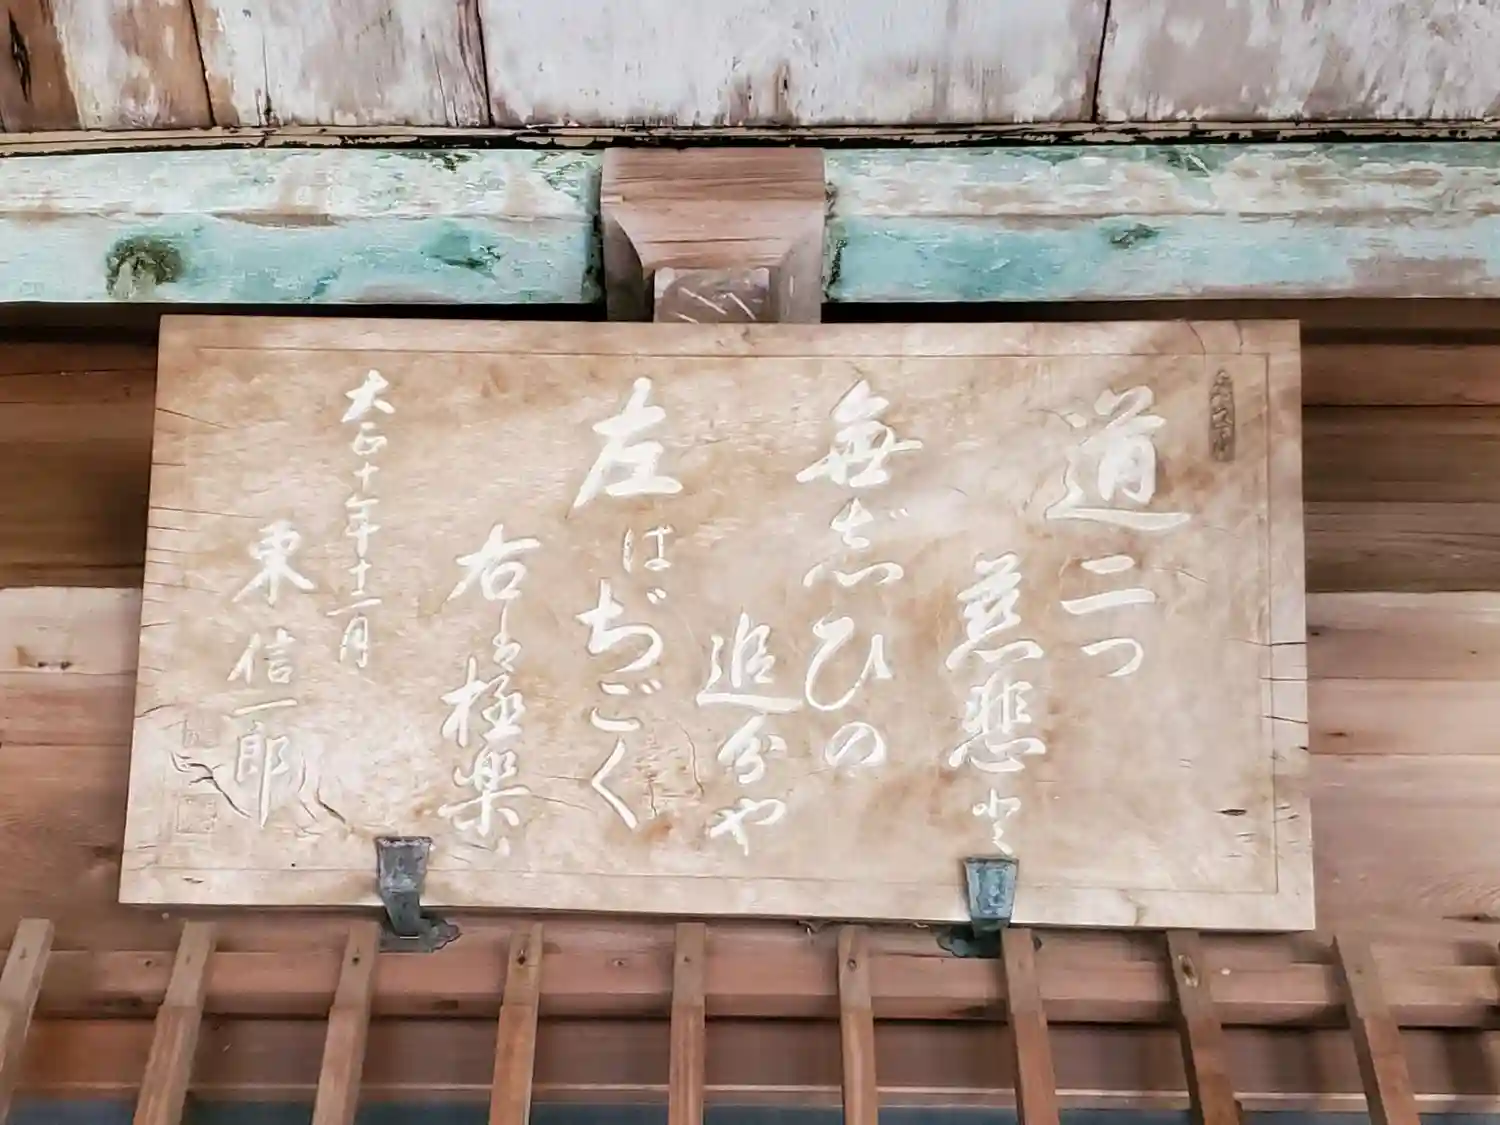 道二つ
慈悲と
無じひの
追分や
左はぢごく
右は極楽
大正十年十一月
東信一郎